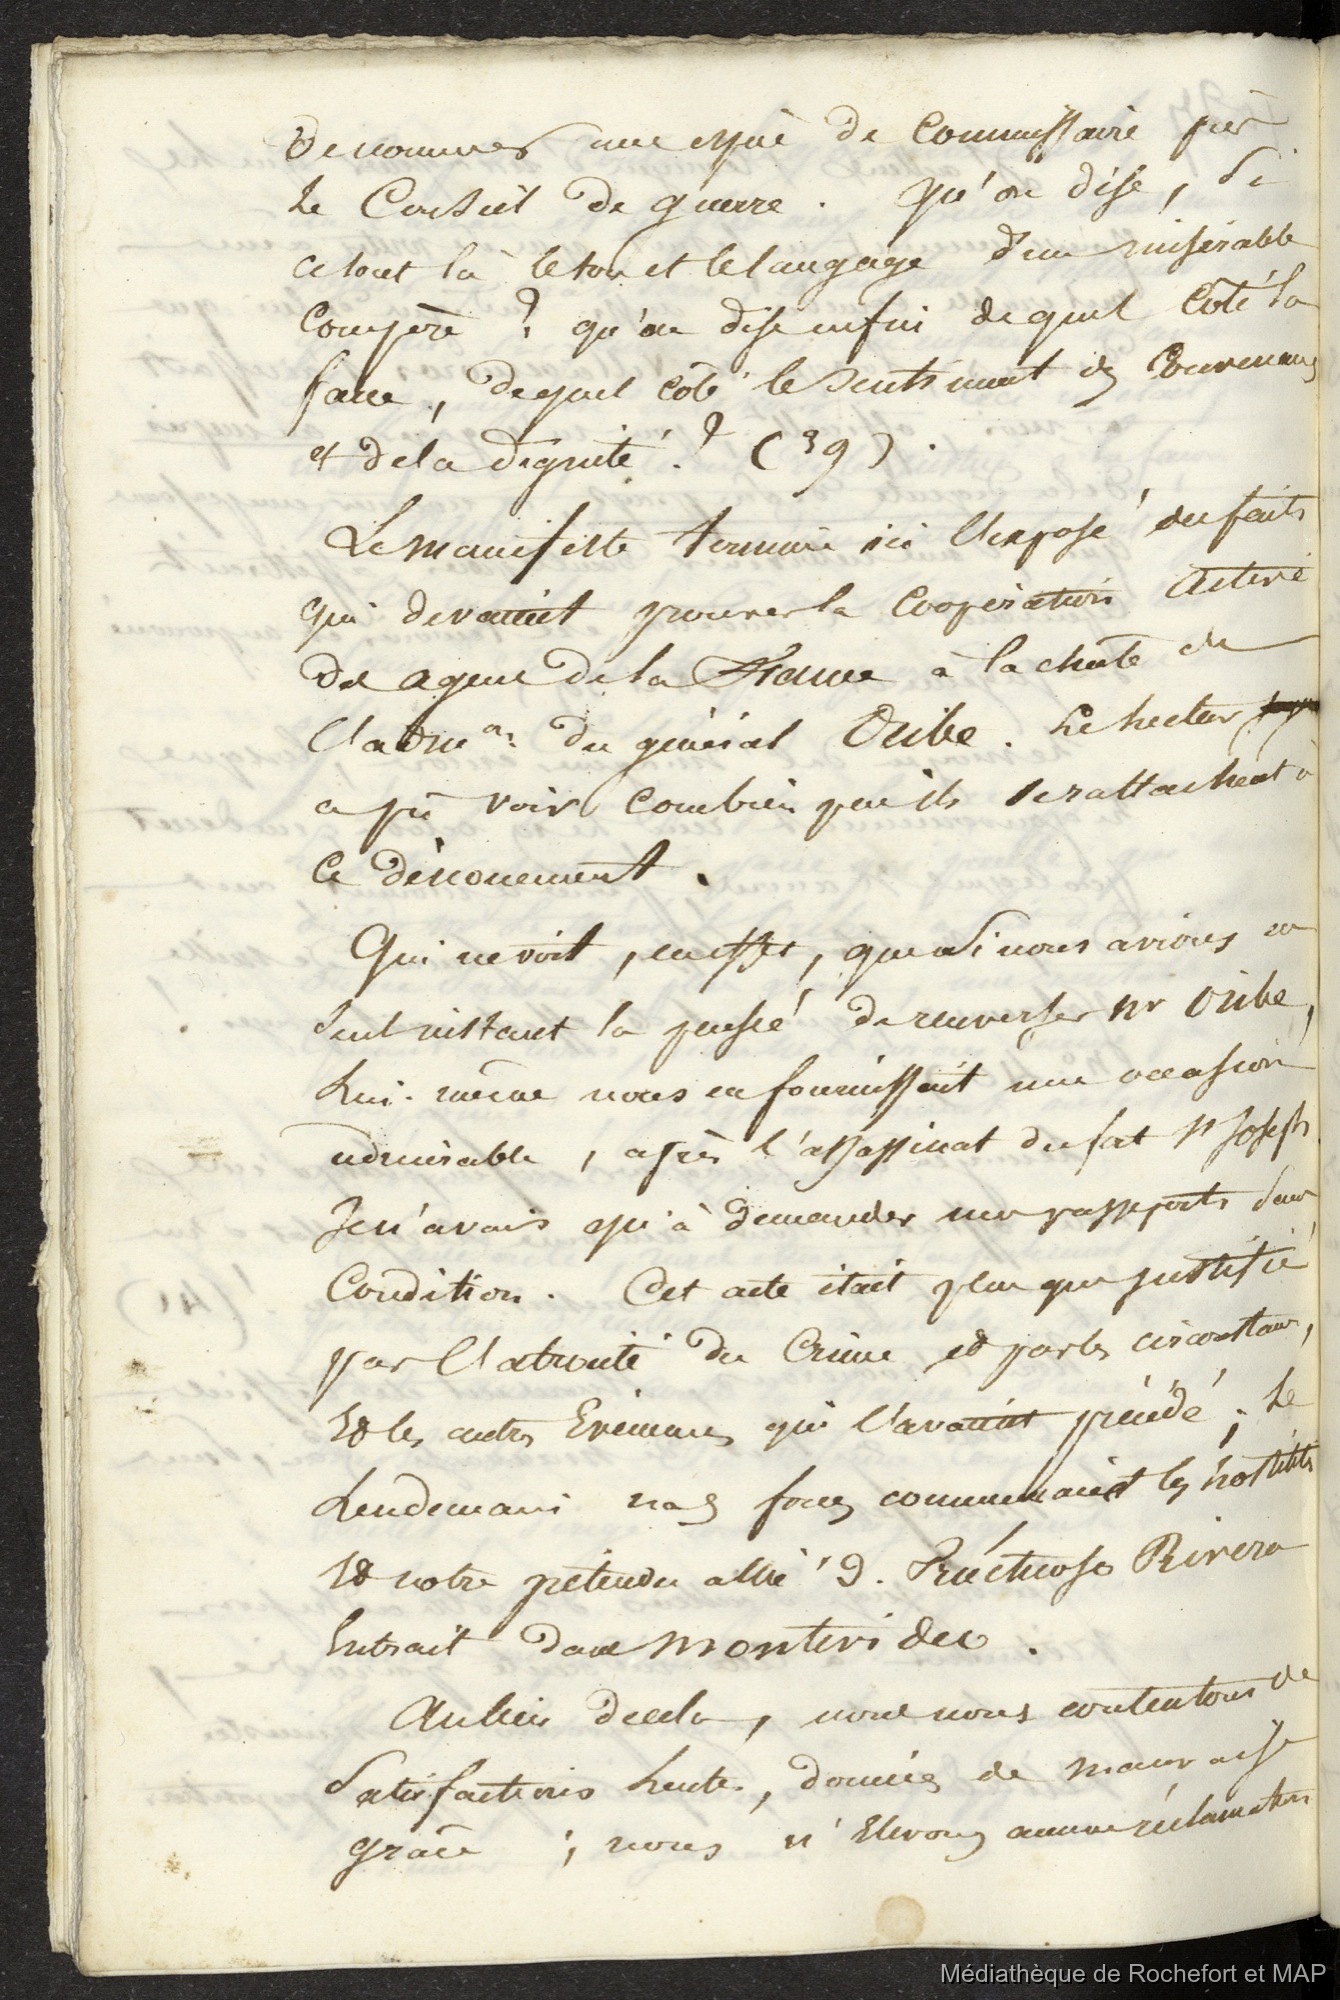 de nommer une espèce de Commissaire près
le Conseil de guerre. Qu'on dise, si
c'etoit là le ton et le langage d'un misérable
Compère ? qu'on dise enfin de quel côté la
farce, de quel côté le sentiment des Convenances
et de la dignité ? (39).
Le manifeste termine ici l'exposé des faits
qui devaient prouver la Coopération Active
des agens de la France à la chute de
l'adm.on du général Oribe. Le lecteur
a pu voir combien peu ils se rattachent à
ce dénouement.
Qui ne voit, en effet, que si nous avions eu
seul instant la pensée de renverser Mr Oribe,
Lui-même nous en fournissait une occasion
admirable, après l'assassinat du fat St Joseph
Je n'avais qu'à demander mes passeports sans
Condition. Cet acte était plus que justifié
par l'atrocité du Crime et par les circonstances,
et les autres Evènemens qui l'avaient précédé ; Le
Lendemain nos forces commençaient les hostilités
et notre prétendu allié D. Fructuoso Rivera
Entrait dans Montevideo.
Au lieu de cela, nous nous contentons de
Satisfactions lentes, données de mauvaise
grâce ; nous n'élevons aucune réclamation
Médiathèque de Rochefort et MAP